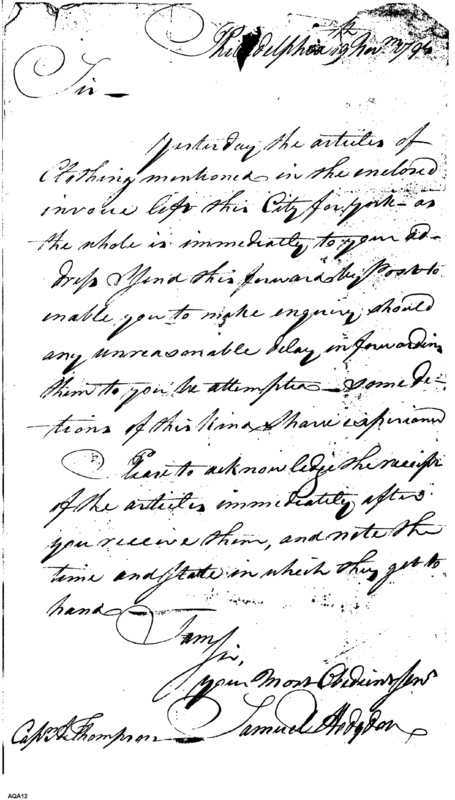 Philadelphia 19th Novr. 179
Sir —
Yesterday the articles of
Clothing mentioned in the enclosed
invoice left this City for york — as
the whole is immediatly to your ad-
dress I send this forward by Post to
enable you to make enquiry should
any unreasonable delay in forwarding
them to you be attempted — some de-
-tions of this kind I have experienced
Please to acknowledge the receipt
of the articles immediately after
you receive them, and note the
time and State in which they get to
hand —
I am
Sir,
your Most Obedient Servt
Samuel Hodgdon
Capt. A. Thompson
AQA12